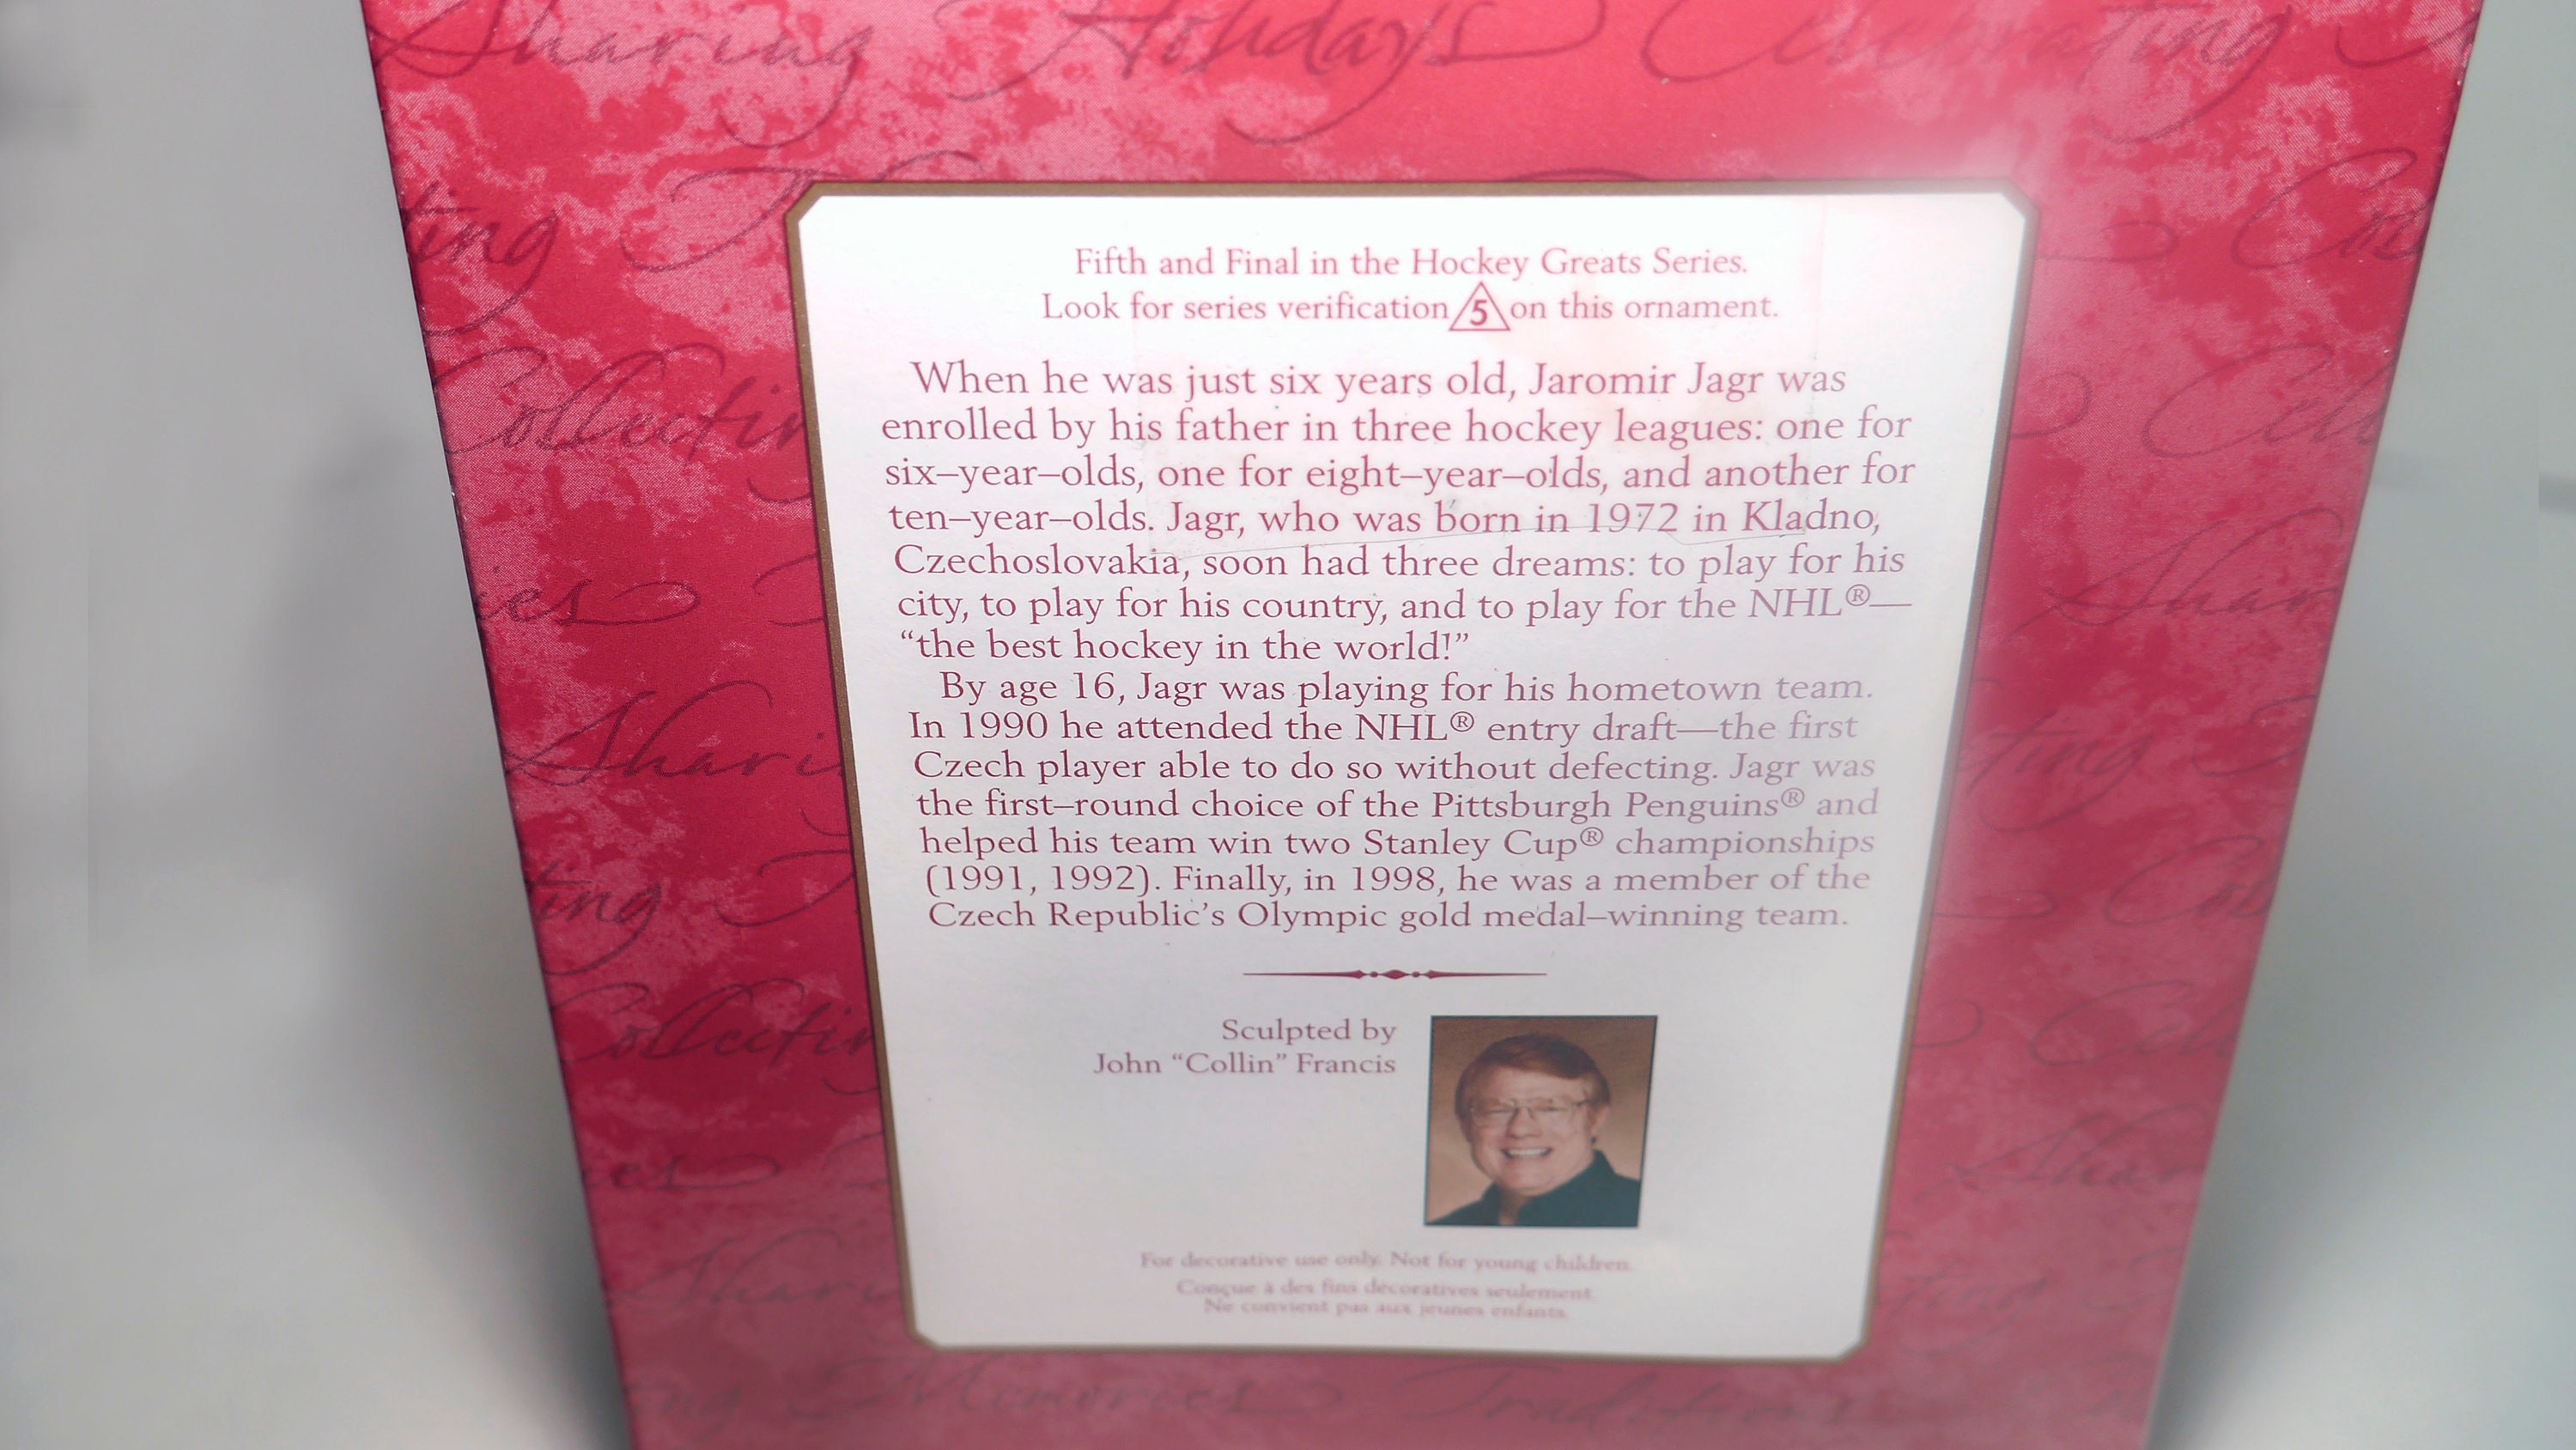 Sharing Holidays Celebrating
Fifth and Final in the Hockey Greats Series.
Look for series verification 5 on this ornament.
When he was just six years old, Jaromir Jagr was
enrolled by his father in three hockey leagues: one for
six–year–olds, one for eight–year–olds, and another for
ten–year–olds. Jagr, who was born in 1972 in Kladno,
Czechoslovakia, soon had three dreams: to play for his
city, to play for his country, and to play for the NHL®—
“the best hockey in the world!”
By age 16, Jagr was playing for his hometown team.
In 1990 he attended the NHL® entry draft—the first
Czech player able to do so without defecting. Jagr was
the first–round choice of the Pittsburgh Penguins® and
helped his team win two Stanley Cup® championships
(1991, 1992). Finally, in 1998, he was a member of the
Czech Republic’s Olympic gold medal–winning team.
Sculpted by
John “Collin” Francis
For decorative use only. Not for young children.
Conçue à des fins décoratives seulement.
Ne convient pas aux jeunes enfants.
Memories Traditions